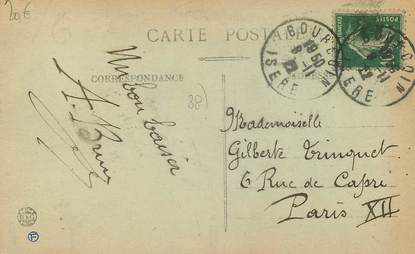 20€
CARTE POSTALE
CORRESPONDANCE
ADRESSE
38
Un bon baiser
BOURGOIN
ISERE
BOURGOIN
ISERE
Mademoiselle
Gilberte Trinquet
6 Rue de Capri
Paris XII